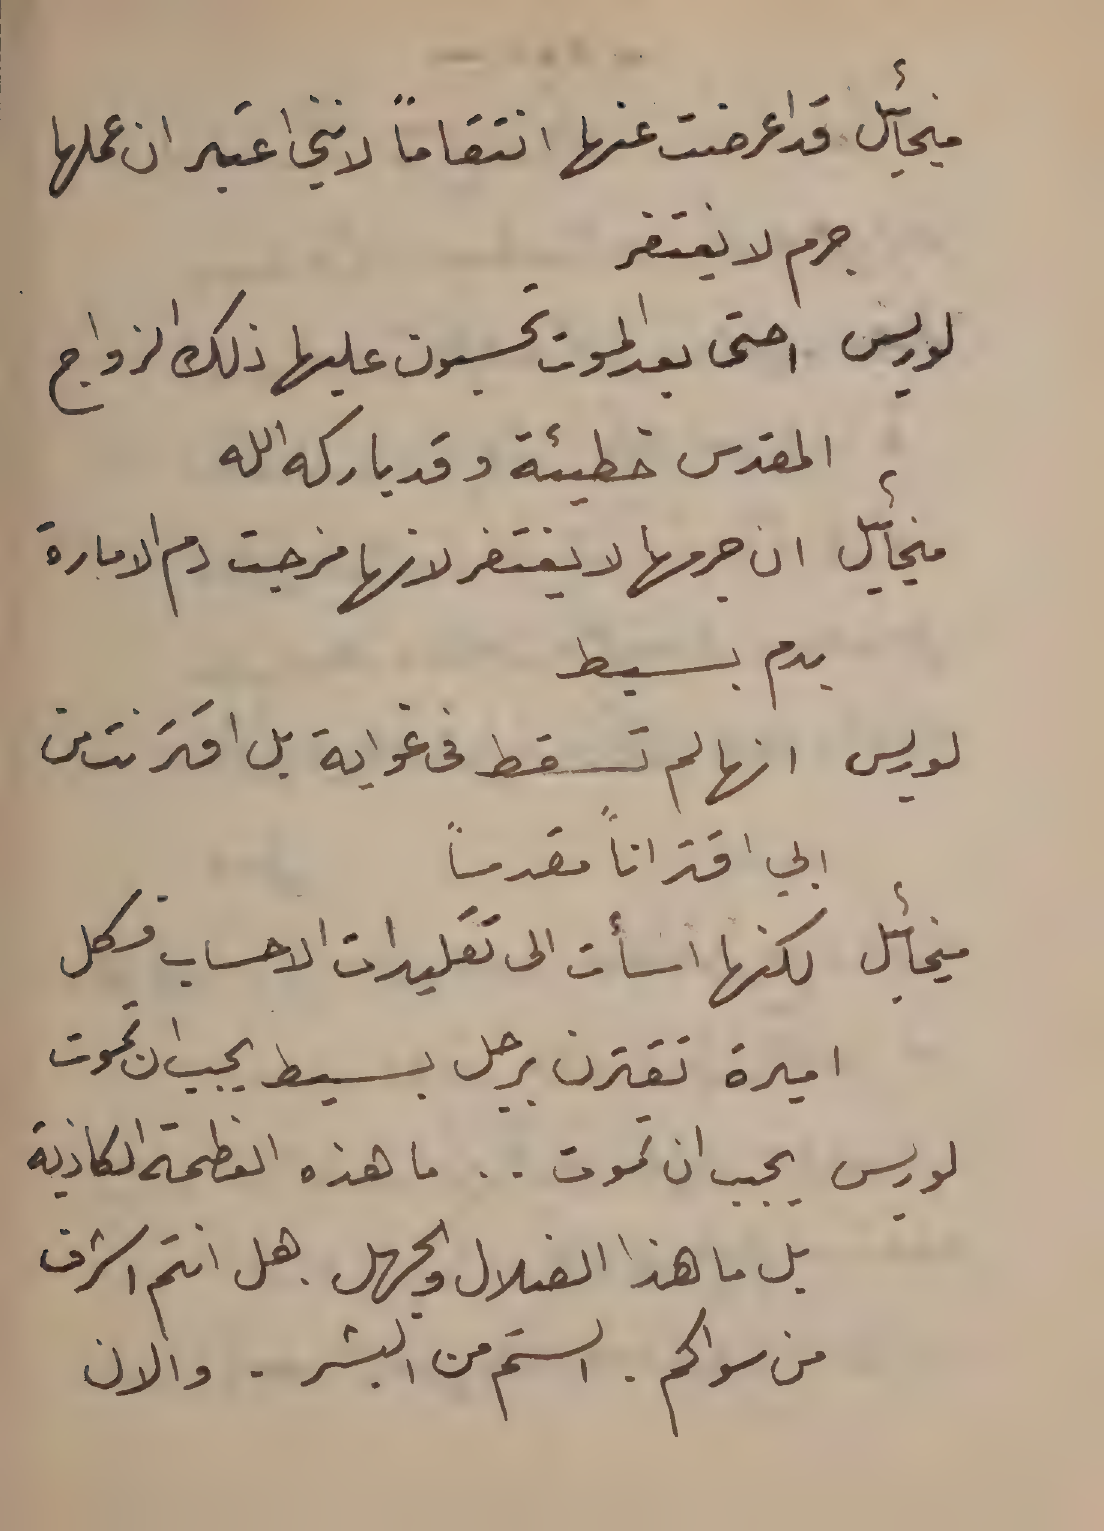 ميخائيل قد اعرضت عنها انتقاماً لانني اعتبر ان عملها
جرم لا يغتفر
لوريس احتى بعد الموت تحسبون عليها ذلك الزواج
المقدس خطيئة وقد باركه الله
ميخائيل ان جرمها لا يغتفر لانها مزجت دم الامارة
بدم بسيط
لوريس انها لم تسقط في غواية بل اقترنت من
ابي اقتراناً مقدساً
ميخائيل لكنها اسأت الى تقليدات الاحساب فكل
اميرة تقترن برجل بسيط يجب ان تموت
لوريس يجب ان تموت .. ما هذه العظمة الكاذبة
بل ما هذا الضلال والجهل . هل انتم اشرف
من سواكم . الستم من البشر . والان